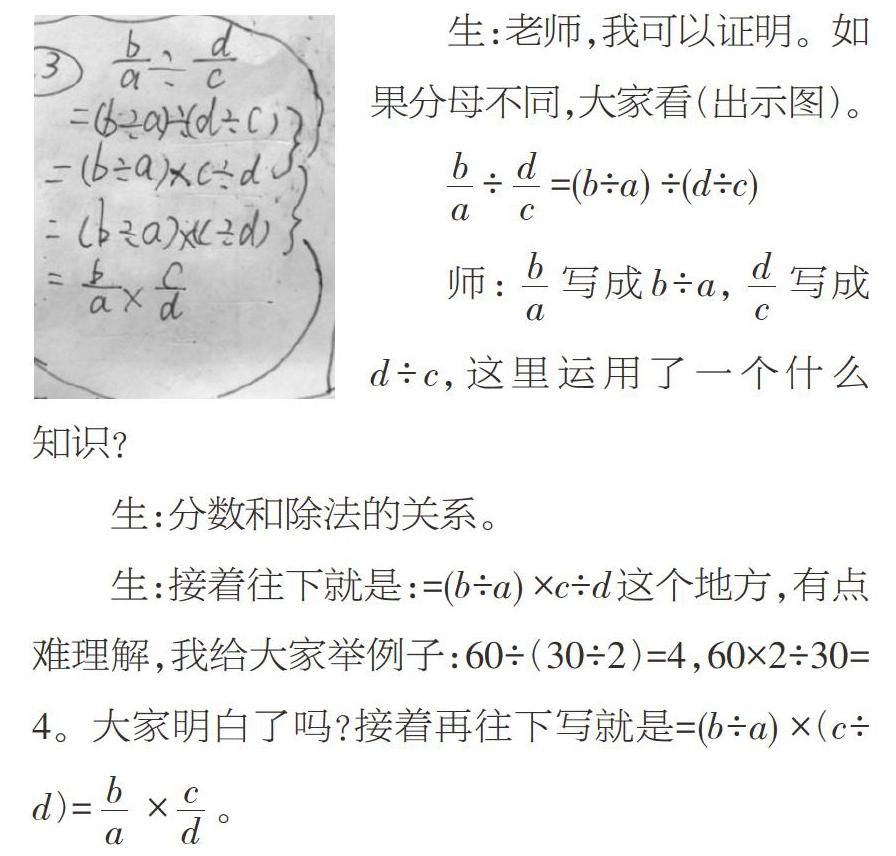 3 b/a ÷ d/c
=(b÷a)÷(d÷c)
=(b÷a)×c÷d
=(b÷a)×(c÷d)
=b/a×c/d
生:老师,我可以证明。如
果分母不同,大家看(出示图)。
b/a÷d/c=(b÷a)÷(d÷c)
师:b/a写成b÷a,d/c写成
d÷c,这里运用了一个什么
知识?
生:分数和除法的关系。
生:接着往下就是:=(b÷a)×c÷d这个地方,有点
难理解,我给大家举例子:60÷(30÷2)=4,60×2÷30=
4。大家明白了吗?接着再往下写就是=(b÷a)×(c÷
d)=b/a×c/d。